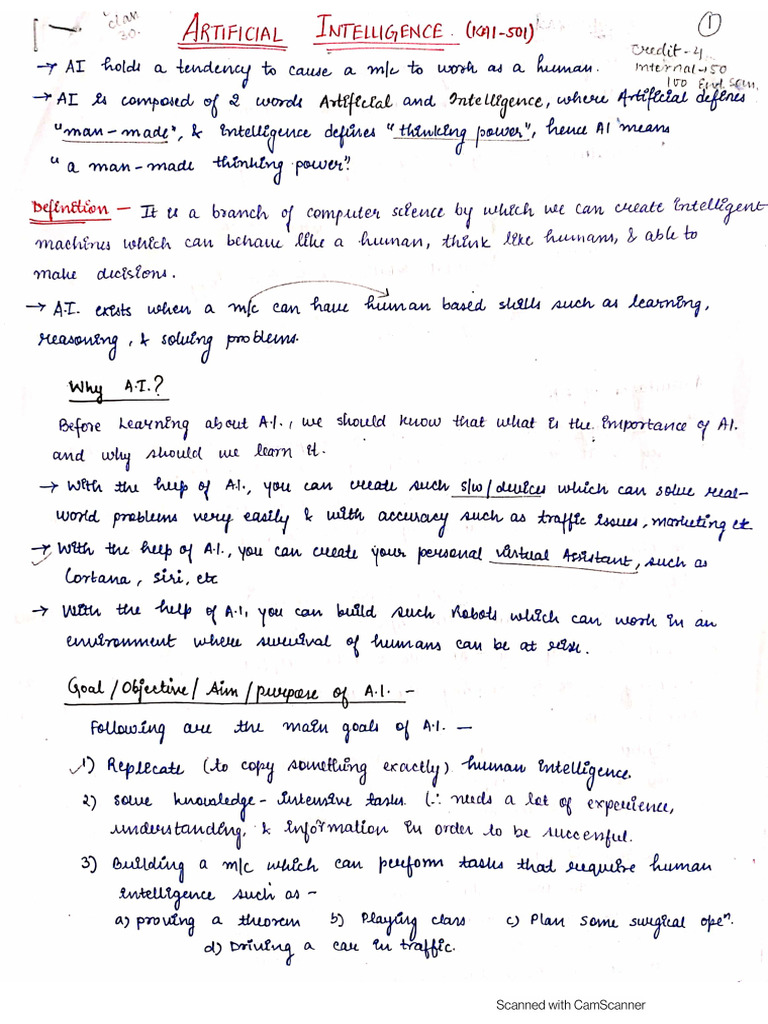 1 - class 30. ARTIFICIAL INTELLIGENCE (KAI-501) 1
Credit - 4
Internal → 50
100 End Sem.
→ AI holds a tendency to cause a m/c to work as a human.
→ AI is composed of 2 words Artificial and Intelligence, where Artificial defines
"man-made", & Intelligence defines "thinking power", hence AI means
"a man-made thinking power".
Definition - It is a branch of computer science by which we can create intelligent
machines which can behave like a human, think like humans, & able to
make decisions.
→ A.I. exists when a m/c can have human based skills such as learning,
reasoning, & solving problems.
Why A.I.?
Before Learning about A.I., we should know that what is the importance of AI.
and why should we learn it.
→ With the help of A.I., you can create such s/w/devices which can solve real-
world problems very easily & with accuracy such as traffic issues, marketing etc
→ With the help of A.I., you can create your personal Virtual Assistant, such as
Cortana, Siri, etc
→ With the help of A.I, you can build such Robots which can work in an
environment where survival of humans can be at risk.
Goal/Objective/Aim/purpose of A.I. -
Following are the main goals of A.I. -
1) Replicate (to copy something exactly) human intelligence.
2) Solve knowledge-intensive tasks. (∵ needs a lot of experience,
understanding, & information in order to be successful.
3) Building a m/c which can perform tasks that require human
intelligence such as -
a) proving a theorem b) Playing class c) Plan some surgical open.
d) Driving a car in traffic.
Scanned with CamScanner